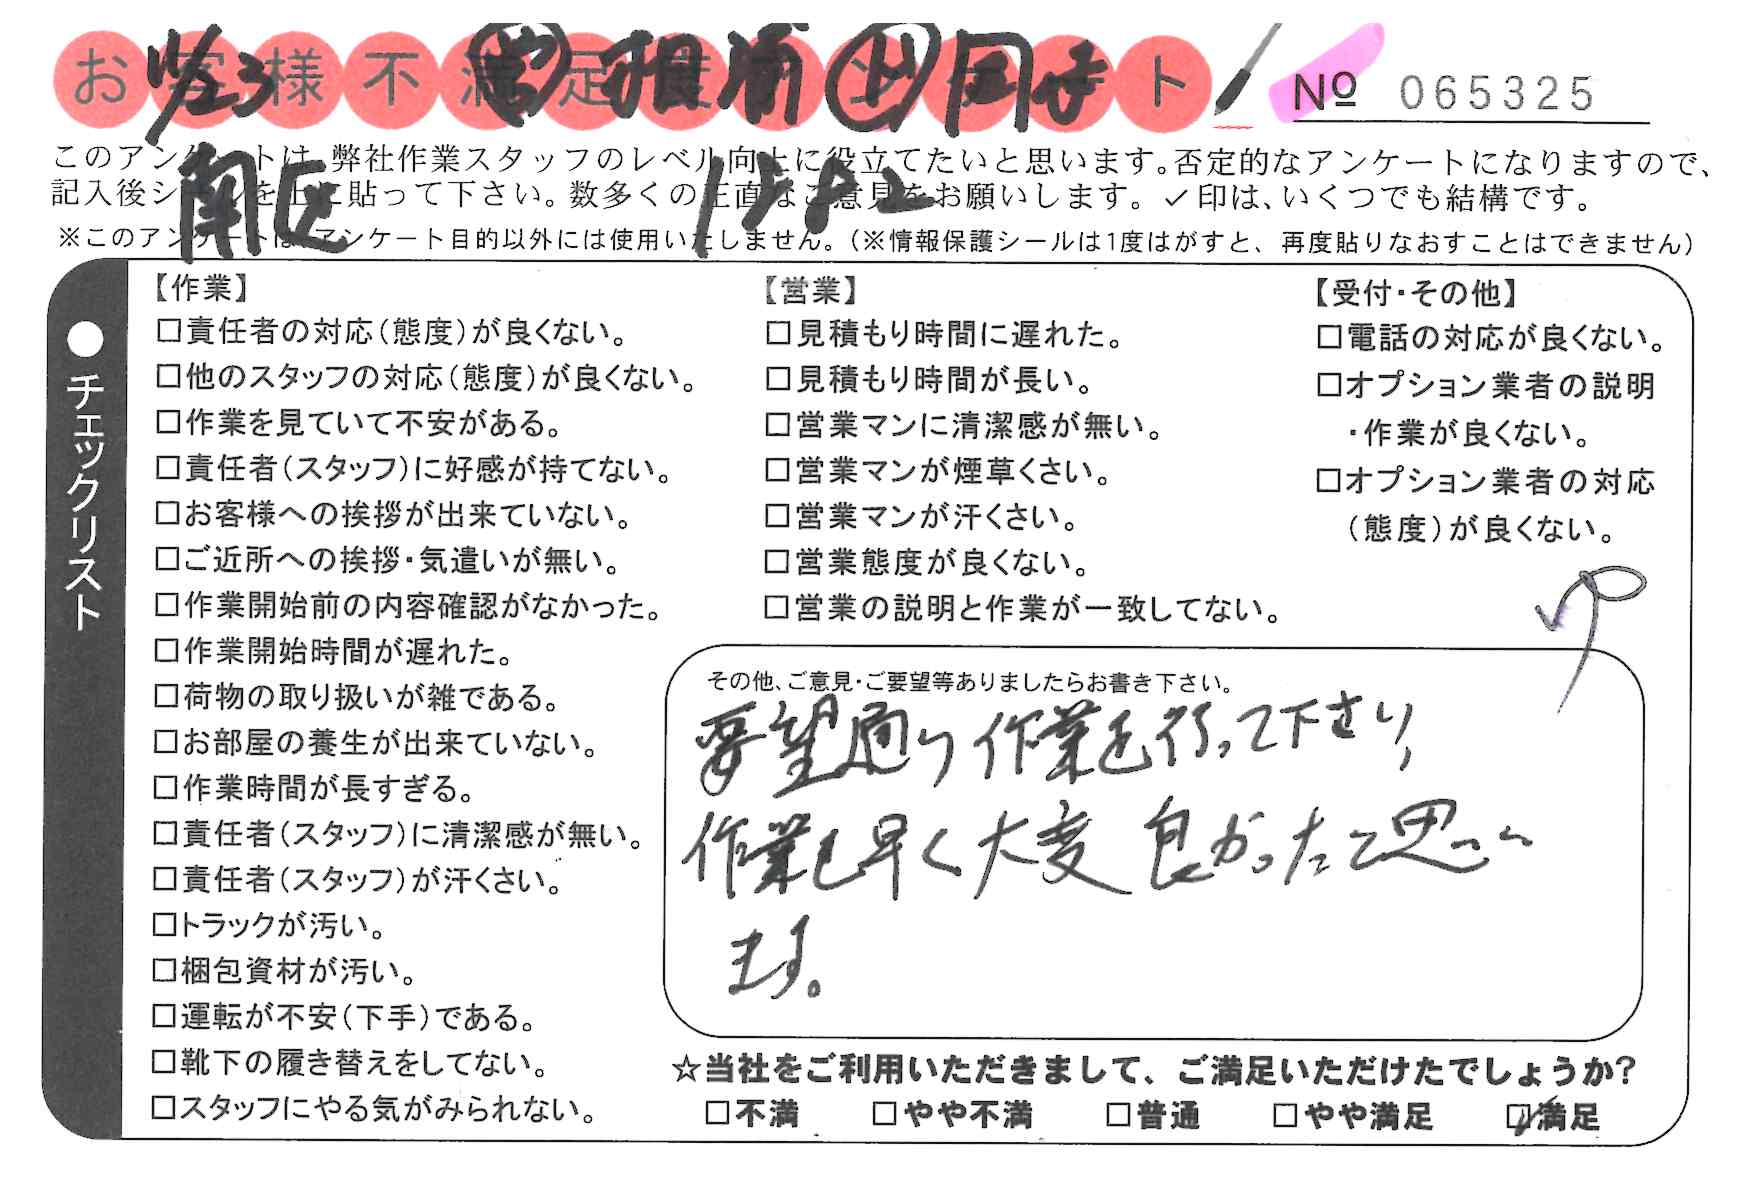 お客様不満足度アンケート
№ 065325
このアンケートは、弊社作業スタッフのレベル向上に役立てたいと思います。否定的なアンケートになりますので、
記入後シールを上に貼って下さい。数多くの正直なご意見をお願いします。✓印は、いくつでも結構です。
※このアンケートは、アンケート目的以外には使用いたしません。(※情報保護シールは1度はがすと、再度貼りなおすことはできません)
南区
●チェックリスト
【作業】
□責任者の対応(態度)が良くない。
□他のスタッフの対応(態度)が良くない。
□作業を見ていて不安がある。
□責任者(スタッフ)に好感が持てない。
□お客様への挨拶が出来ていない。
□ご近所への挨拶・気遣いが無い。
□作業開始前の内容確認がなかった。
□作業開始時間が遅れた。
□荷物の取り扱いが雑である。
□お部屋の養生が出来ていない。
□作業時間が長すぎる。
□責任者(スタッフ)に清潔感が無い。
□責任者(スタッフ)が汗くさい。
□トラックが汚い。
□梱包資材が汚い。
□運転が不安(下手)である。
□靴下の履き替えをしてない。
□スタッフにやる気がみられない。
【営業】
□見積もり時間に遅れた。
□見積もり時間が長い。
□営業マンに清潔感が無い。
□営業マンが煙草くさい。
□営業マンが汗くさい。
□営業態度が良くない。
□営業の説明と作業が一致してない。
【受付・その他】
□電話の対応が良くない。
□オプション業者の説明
・作業が良くない。
□オプション業者の対応
(態度)が良くない。
その他、ご意見・ご要望等ありましたらお書き下さい。
要望通り作業を行って下さり、
作業も早く大変良かったと思い
ます。
☆当社をご利用いただきまして、ご満足いただけたでしょうか?
□不満 □やや不満 □普通 □やや満足 ☑満足